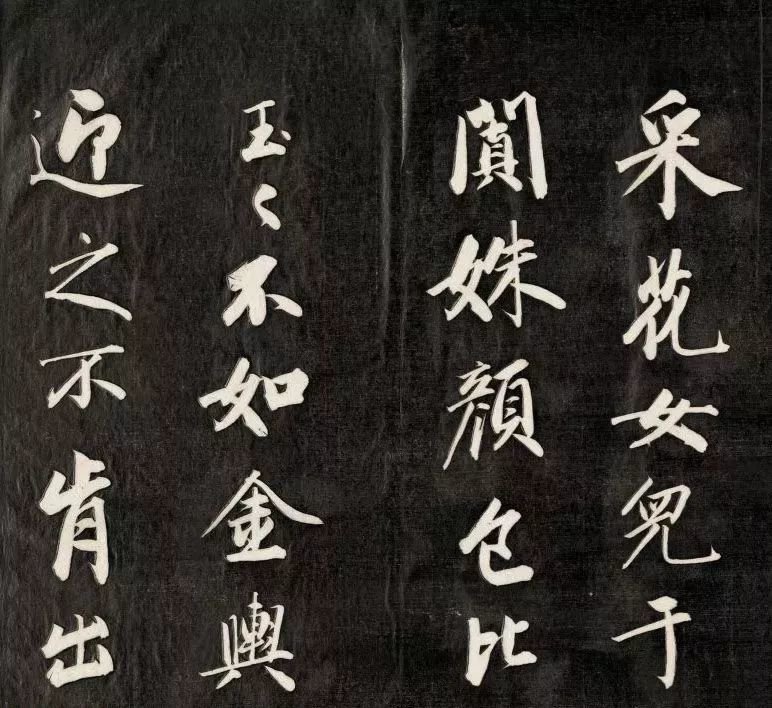 采花女兒于
闐姝顏色比
玉〻不如金輿
迎之不肯出